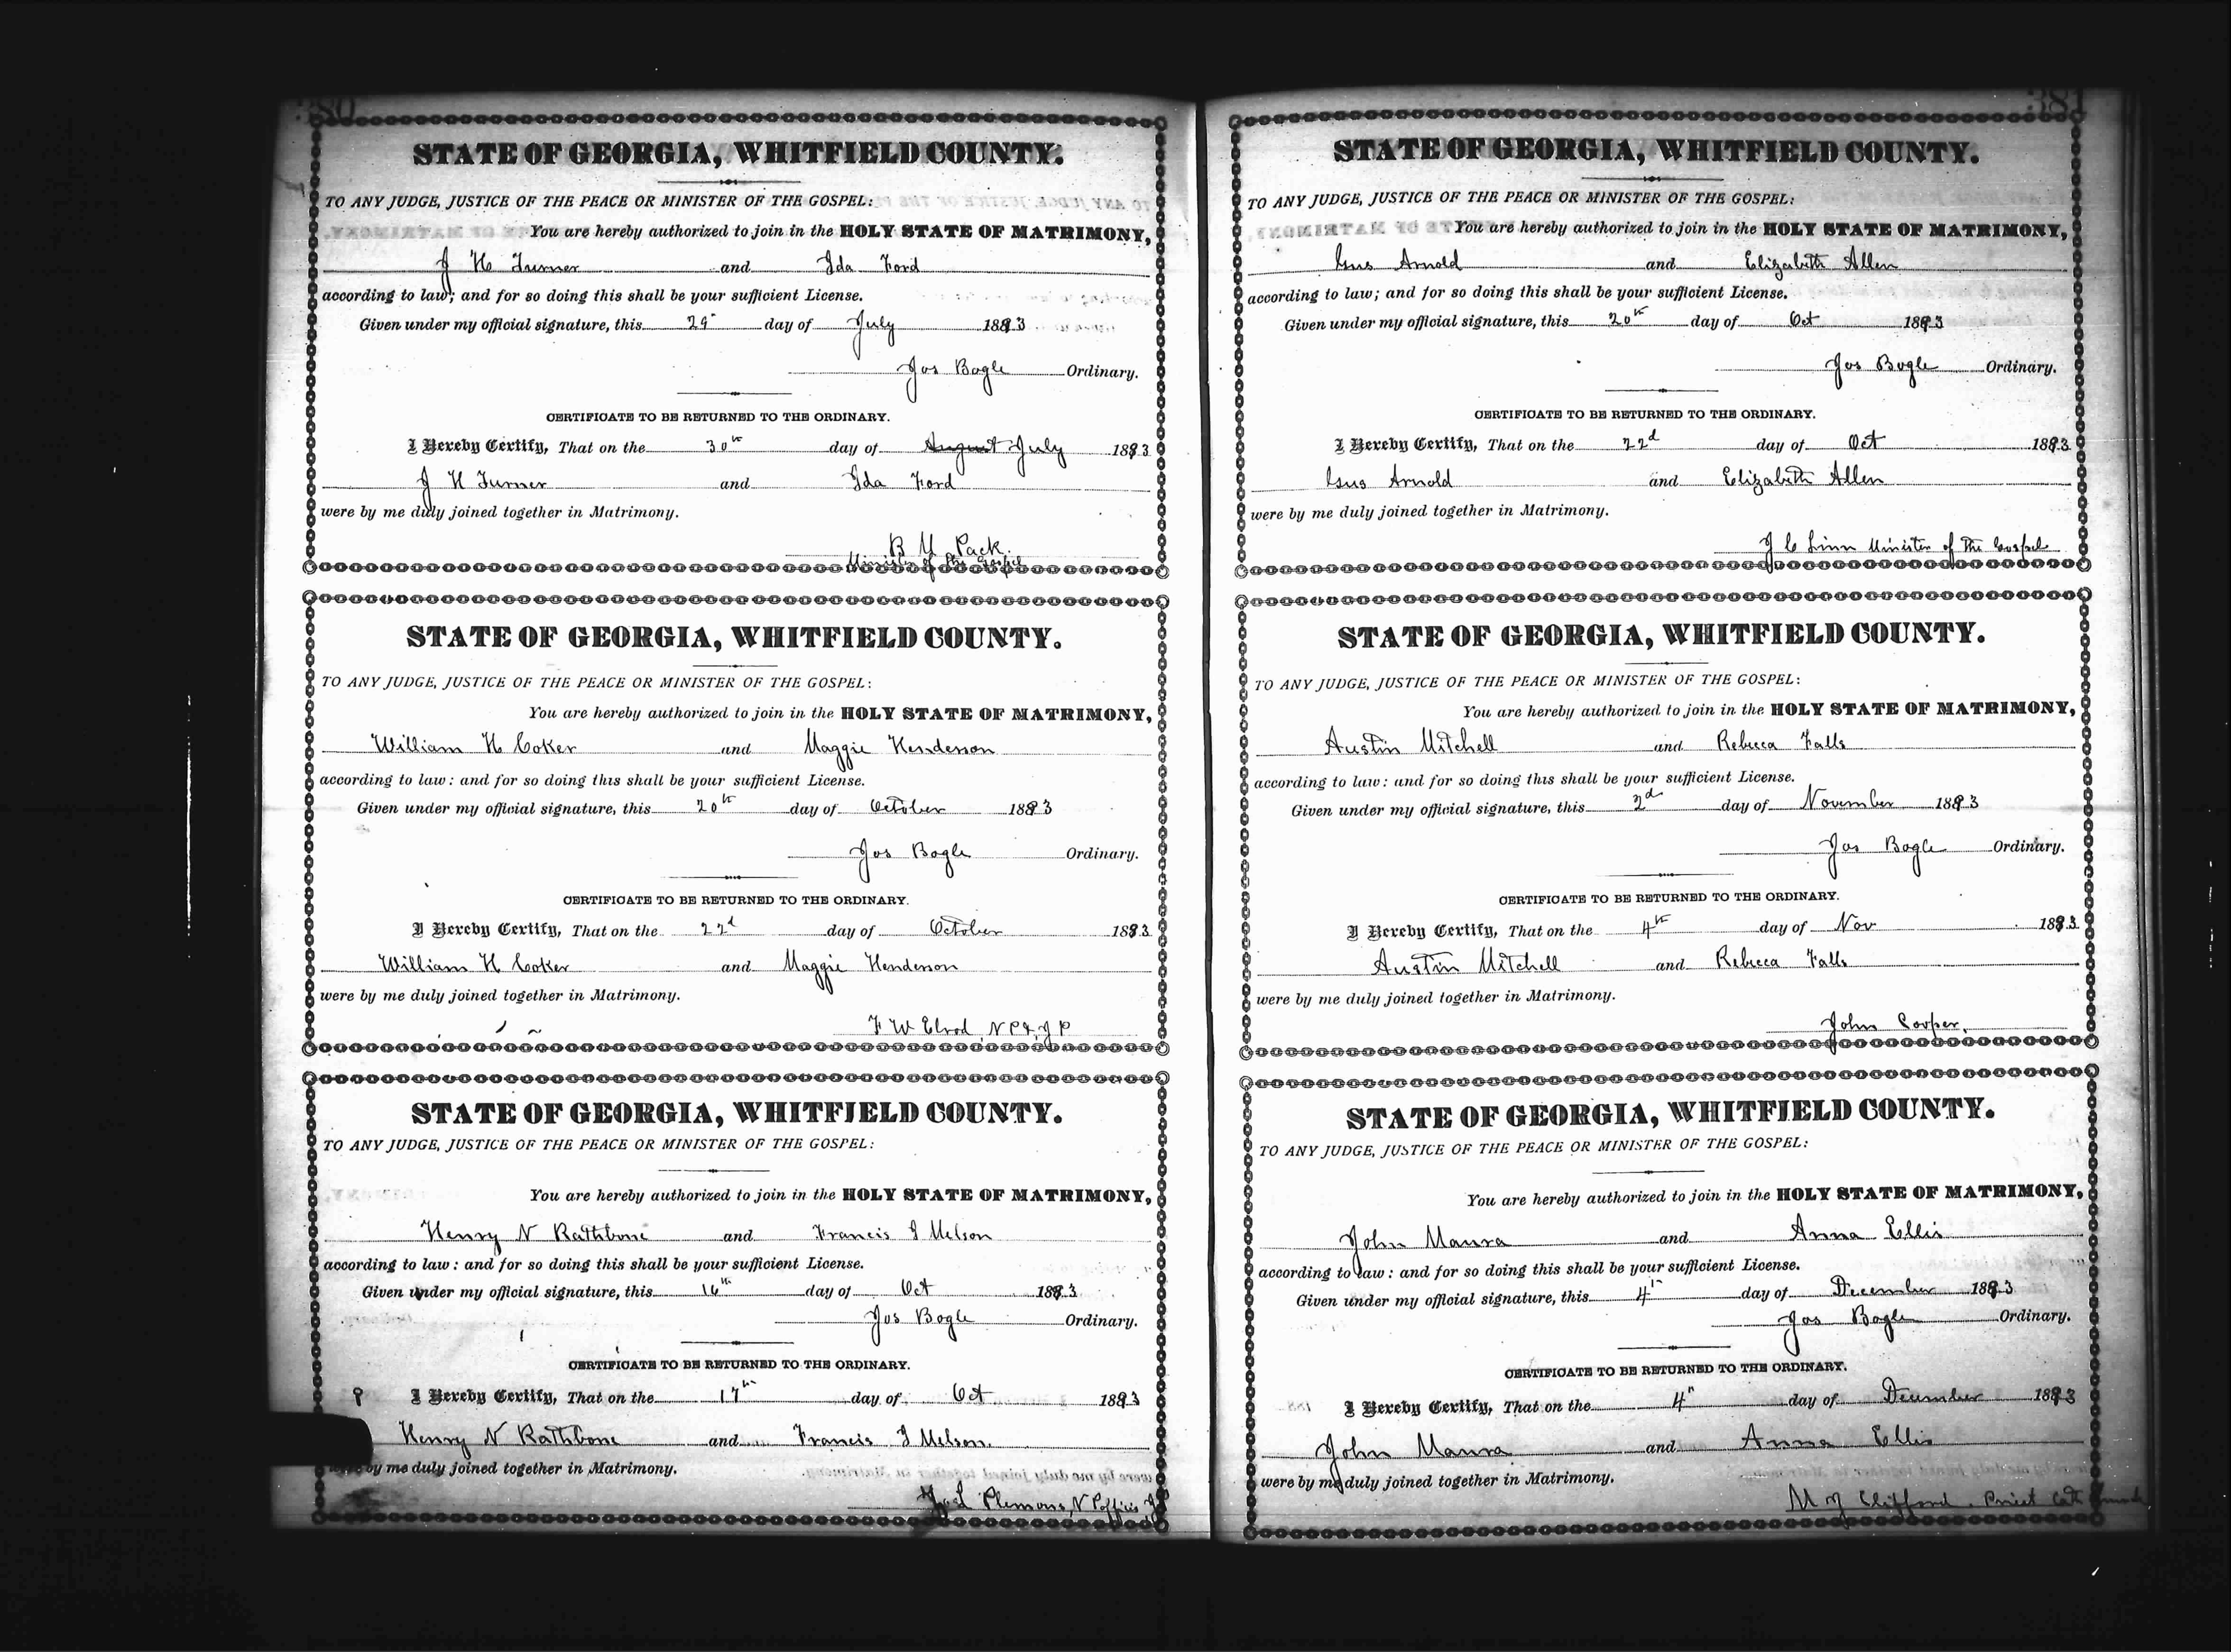 380
STATE OF GEORGIA, WHITFIELD COUNTY.
TO ANY JUDGE, JUSTICE OF THE PEACE OR MINISTER OF THE GOSPEL:
You are hereby authorized to join in the HOLY STATE OF MATRIMONY,
J H Turner and Ida Ford
according to law; and for so doing this shall be your sufficient License.
Given under my official signature, this 29th day of July 1893
Jos Bogle Ordinary.
CERTIFICATE TO BE RETURNED TO THE ORDINARY.
I Hereby Certify, That on the 30th day of August July 1893
J H Turner and Ida Ford
were by me duly joined together in Matrimony.
B M Pack.
Minister of the Gospel
STATE OF GEORGIA, WHITFIELD COUNTY.
TO ANY JUDGE, JUSTICE OF THE PEACE OR MINISTER OF THE GOSPEL:
You are hereby authorized to join in the HOLY STATE OF MATRIMONY,
William H Coker and Maggie Henderson
according to law: and for so doing this shall be your sufficient License.
Given under my official signature, this 20th day of October 1893
Jos Bogle Ordinary.
CERTIFICATE TO BE RETURNED TO THE ORDINARY.
I Hereby Certify, That on the 22d day of October 1893
William H Coker and Maggie Henderson
were by me duly joined together in Matrimony.
F W Elrod N P & J P
STATE OF GEORGIA, WHITFIELD COUNTY.
TO ANY JUDGE, JUSTICE OF THE PEACE OR MINISTER OF THE GOSPEL:
You are hereby authorized to join in the HOLY STATE OF MATRIMONY,
Henry N Rathbone and Francis I Melson
according to law: and for so doing this shall be your sufficient License.
Given under my official signature, this 16th day of Oct 1893
Jos Bogle Ordinary.
CERTIFICATE TO BE RETURNED TO THE ORDINARY.
I Hereby Certify, That on the 17th day of Oct 1893
Henry N Rathbone and Francis I Melson.
by me duly joined together in Matrimony.
Plemons, N P
381
STATE OF GEORGIA, WHITFIELD COUNTY.
TO ANY JUDGE, JUSTICE OF THE PEACE OR MINISTER OF THE GOSPEL:
You are hereby authorized to join in the HOLY STATE OF MATRIMONY,
Gus Arnold and Elizabeth Allen
according to law; and for so doing this shall be your sufficient License.
Given under my official signature, this 20th day of Oct 1893
Jos Bogle Ordinary.
CERTIFICATE TO BE RETURNED TO THE ORDINARY.
I Hereby Certify, That on the 22d day of Oct 1893
Gus Arnold and Elizabeth Allen
were by me duly joined together in Matrimony.
J C Linn Minister of the Gospel
STATE OF GEORGIA, WHITFIELD COUNTY.
TO ANY JUDGE, JUSTICE OF THE PEACE OR MINISTER OF THE GOSPEL:
You are hereby authorized to join in the HOLY STATE OF MATRIMONY,
Austin Mitchell and Rebecca Falls
according to law: and for so doing this shall be your sufficient License.
Given under my official signature, this 2d day of November 1893
Jos Bogle Ordinary.
CERTIFICATE TO BE RETURNED TO THE ORDINARY.
I Hereby Certify, That on the 4th day of Nov 1893
Austin Mitchell and Rebecca Falls
were by me duly joined together in Matrimony.
John Cooper.
STATE OF GEORGIA, WHITFIELD COUNTY.
TO ANY JUDGE, JUSTICE OF THE PEACE OR MINISTER OF THE GOSPEL:
You are hereby authorized to join in the HOLY STATE OF MATRIMONY,
John Manra and Anna Ellis
according to law: and for so doing this shall be your sufficient License.
Given under my official signature, this 4th day of December 1893
Jos Bogle Ordinary.
CERTIFICATE TO BE RETURNED TO THE ORDINARY.
I Hereby Certify, That on the 4th day of December 1893
John Manra and Anna Ellis
were by me duly joined together in Matrimony.
M J Clifford. Priest Cath Church